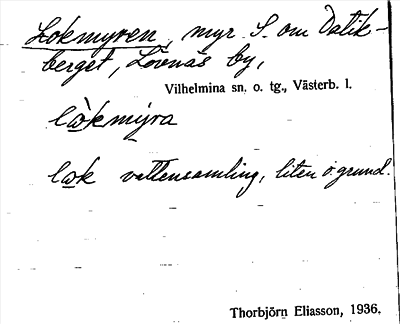 Lokmyren, myr S. om Dalik-
berget, Lövnäs by,
Vilhelmina sn. o. tg., Västerb. l.
lòkmýra
lok vattensamling, liten o. grund.
Thorbjörn Eliasson, 1936.